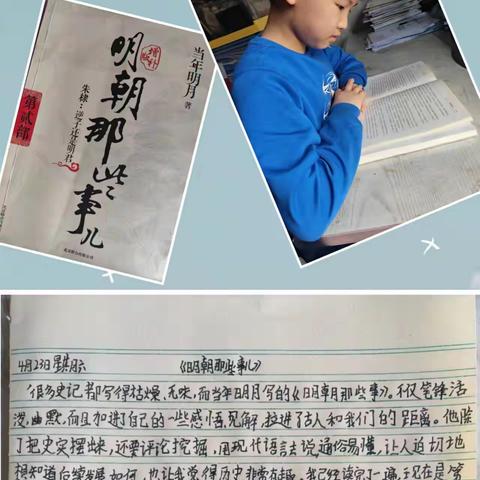 当年明月 著
增补版
明朝那些事儿
第贰部
朱棣：逆子还是明君
4月23日 星期六 《明朝那些事儿》
很多史记都写得枯燥、无味，而当年明月写的《明朝那些事》。不仅笔锋活
泼，幽默，而且加进了自己的一些感悟，见解，拉进了古人和我们的距离。他除
了把史实摆出来，还要评论挖掘，用现代语言去说，通俗易懂，让人迫切地
想知道后续发展如何，也让我觉得历史非常有趣，我已经读完了一遍，现在是第